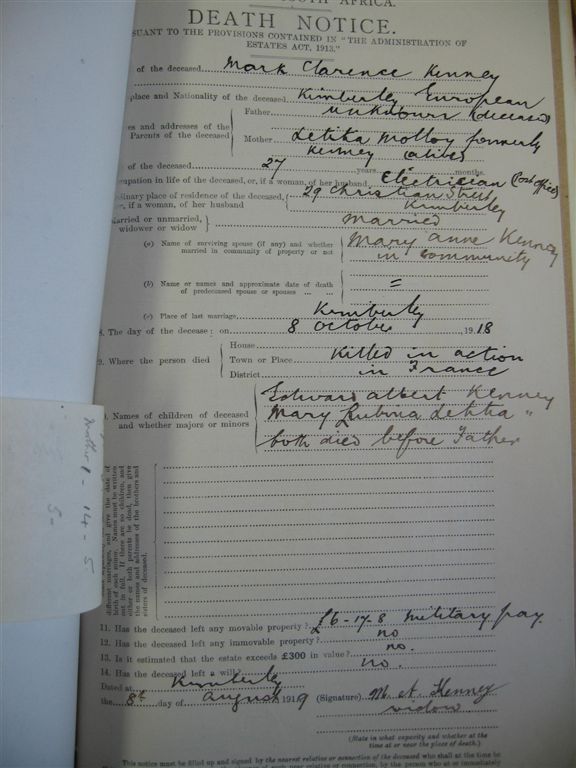 SOUTH AFRICA.
DEATH NOTICE.
SUANT TO THE PROVISIONS CONTAINED IN "THE ADMINISTRATION OF
ESTATES ACT, 1913."
of the deceased Mark Clarence Kenney
place and Nationality of the deceased Kimberley European
es and addresses of the
Parents of the deceased
Father unknown (deceased)
Mother Letitia Molloy formerly
Kenney (alive)
of the deceased 27 years months.
cupation in life of the deceased, or, if a woman, of her husband Electrician (Post office)
dinary place of residence of the deceased, 29 Christian Street
or, if a woman, of her husband Kimberley
Married or unmarried,
widower or widow
married
(a) Name of surviving spouse (if any) and whether
married in community of property or not
Mary Anne Kenney
in community
(b) Name or names and approximate date of death
of predeceased spouse or spouses =
(c) Place of last marriage Kimberley
8. The day of the decease: on 8 October 1918
9. Where the person died
House
Town or Place Killed in action
District in France
Names of children of deceased
and whether majors or minors
Edward Albert Kenney
Mary Rubina Letitia "
both died before Father
different marriages, and give the date of
birth of each minor. Names must be written
out in full. If there are no children, and
either or both parents be dead, then give
the names and addresses of the brothers and
sisters of deceased.
1 - 14 - 5
11. Has the deceased left any movable property? £6-17-8 Military pay.
12. Has the deceased left any immovable property? no
13. Is it estimated that the estate exceeds £300 in value? no.
14. Has the deceased left a will? no.
Dated at Kimberley
the 8th day of August 1919 (Signature) M. A. Kenney
widow
(State in what capacity and whether at the
time at or near the place of death.)
This notice must be filled up and signed by the nearest relative or connection of the deceased who shall at the time be